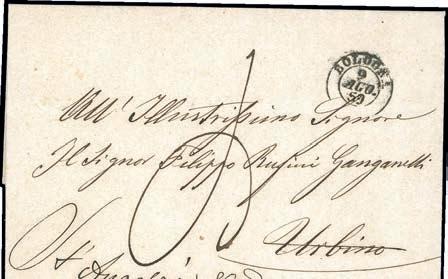 BOLOGNA
9
AGO.
59
All' Illustrissimo Signore
Il Signor Filippo Rufini Ganganelli
Urbino
St Angelo in